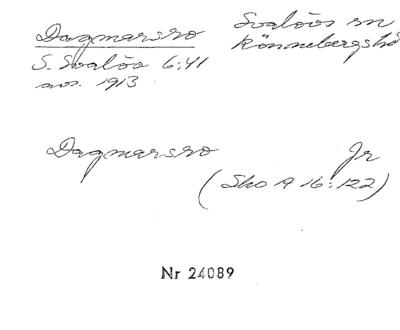 Dagmarsro
Svalövs sn
Rönnebergs hd
S. Svalöv 6:41
avs. 1913
Dagmarsro Jr
(Sko A 16:122)
Nr 24089